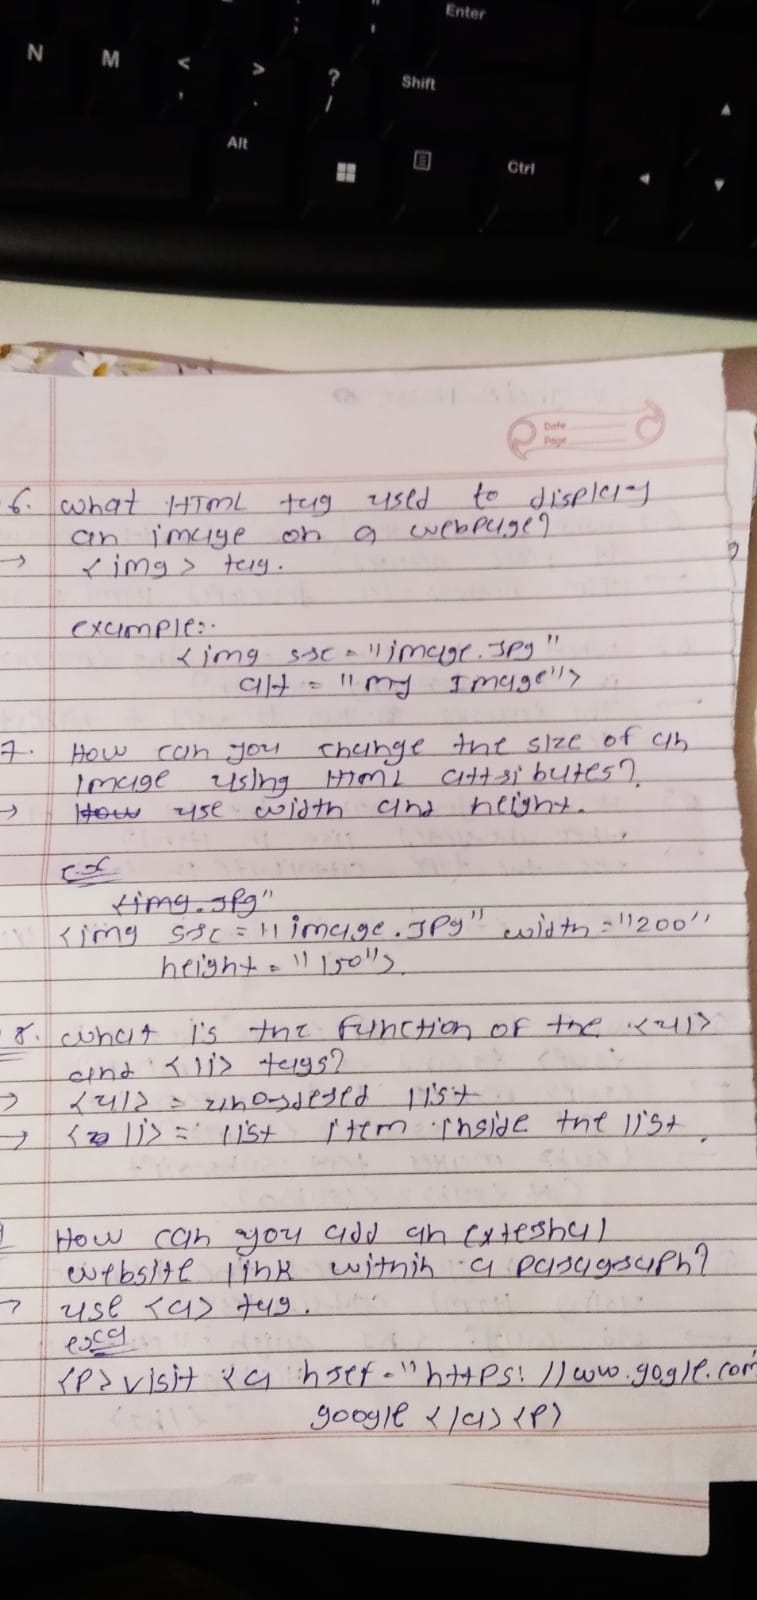 Enter
N M < , > . ? / Shift
Alt Ctrl
Date
Page
6. What HTML tag used to display
an image on a webpage?
→ <img> tag.
example:-
<img src = "image.jpg"
alt = "my Image">
7. How can you change the size of an
image using HTML attributes?
→ How use width and height.
ex
<img.jpg"
<img src = "image.jpg" width = "200"
height = "150">.
8. what is the function of the <ul>
and <li> tags?
→ <ul> = unordered list
→ <li> = list item inside the list.
How can you add an external
website link within a paragraph?
→ use <a> tag.
<p> visit <a href = "https://www.gogle.com
google </a> <p>